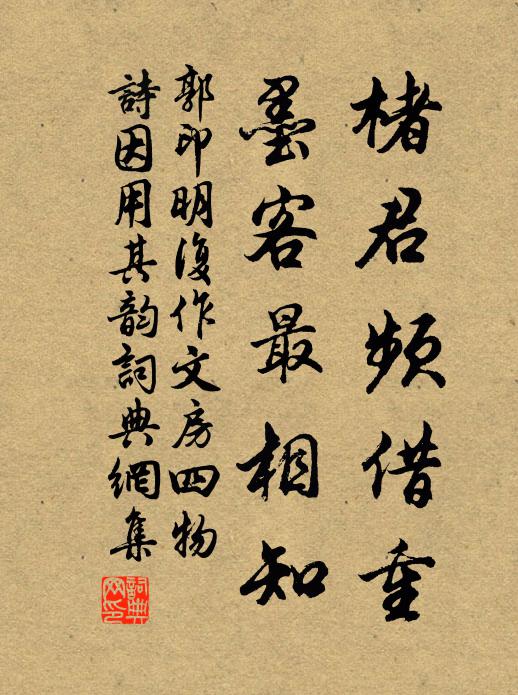 楮君频借重
墨客最相知
郭印明復作文房四物
詩因用其韵詞典網集